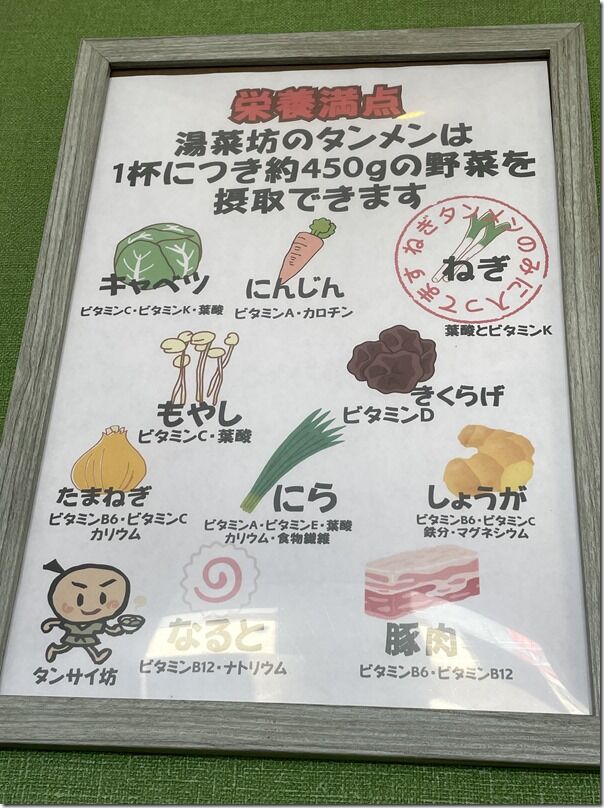 栄養満点
湯菜坊のタンメンは
1杯につき約450gの野菜を
摂取できます
キャベツ
ビタミンC・ビタミンK・葉酸
にんじん
ビタミンA・カロチン
ねぎタンメンのみに入ってます
ねぎ
葉酸とビタミンK
もやし
ビタミンC・葉酸
きくらげ
ビタミンD
たまねぎ
ビタミンB6・ビタミンC
カリウム
にら
ビタミンA・ビタミンE・葉酸
カリウム・食物繊維
しょうが
ビタミンB6・ビタミンC
鉄分・マグネシウム
タンサイ坊
なると
ビタミンB12・ナトリウム
豚肉
ビタミンB6・ビタミンB12